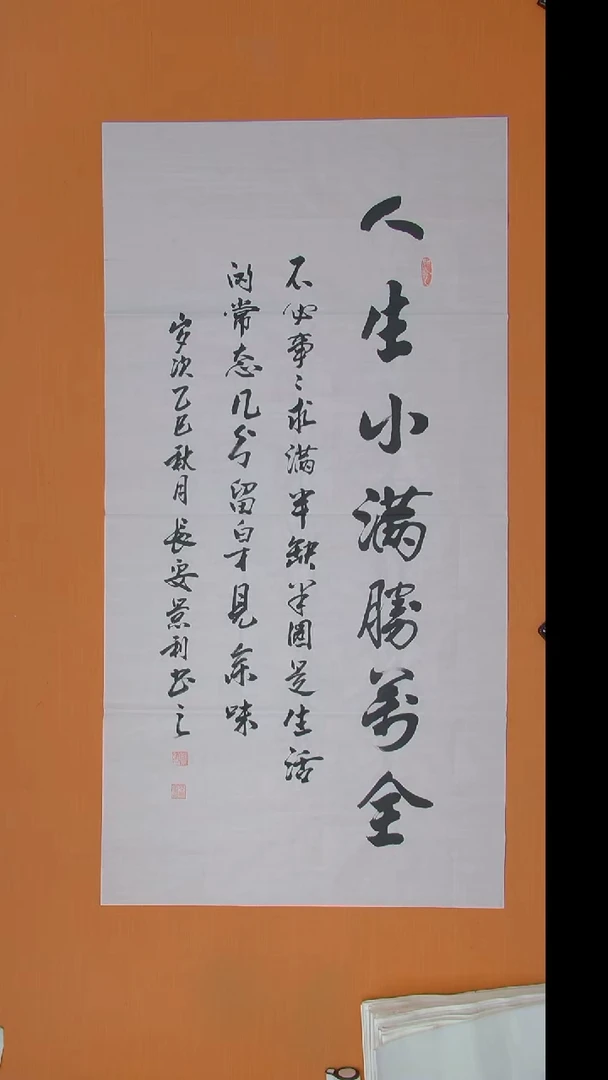 人生小满勝萬全
不必事〻求满半缺半圆是生活
的常态几分留白才見余味
岁次乙巳秋月長安景利书之